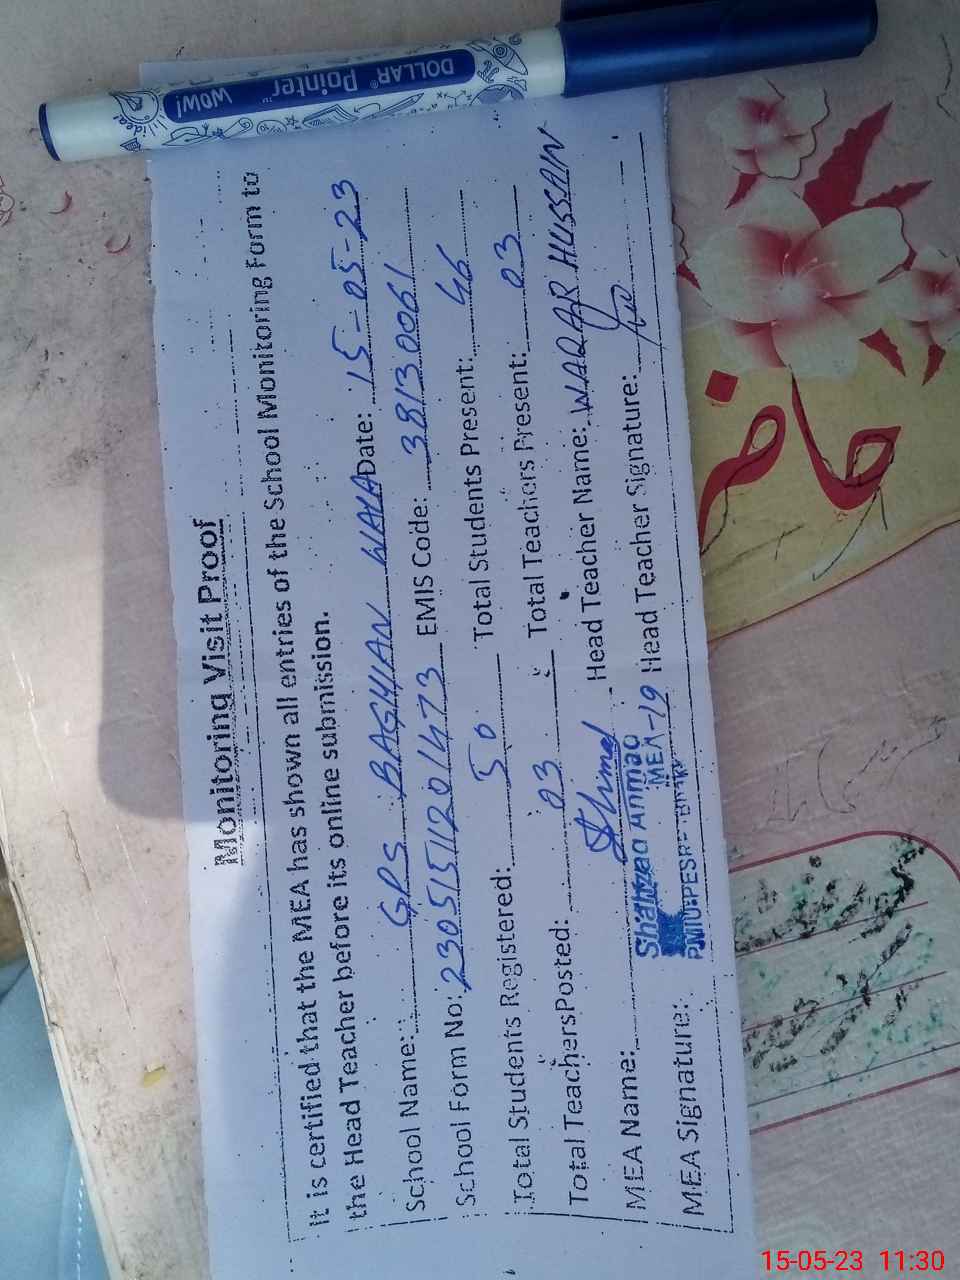 DOLLAR® Pointer™ WOW!
idea
Monitoring Visit Proof
It is certified that the MEA has shown all entries of the School Monitoring Form to
the Head Teacher before its online submission.
School Name: GPS BAGHIAN WALA Date: 15-05-23
School Form No: 23051511201473 EMIS Code: 38130061
Total Students Registered: 50 Total Students Present: 46
Total Teachers Posted: 03 Total Teachers Present: 03
MEA Name: Head Teacher Name: WAQAR HUSSAIN
Shahzad Ahmad
MEA-19
PMIU-PESRP
MEA Signature: Head Teacher Signature:
حاضر
15-05-23 11:30